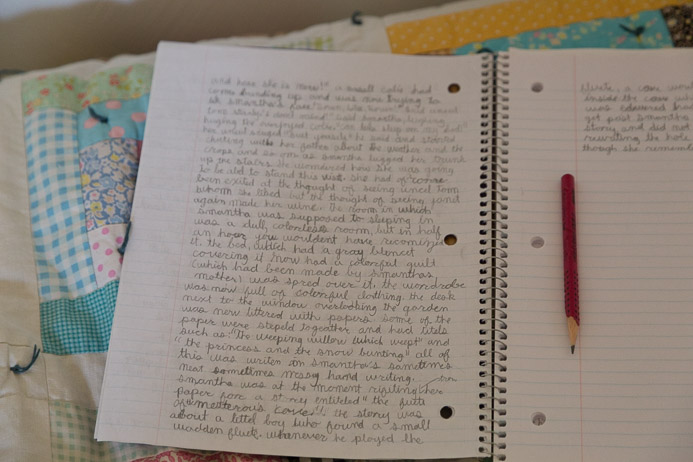 and here she is now!" a small colie had
come bunding up and was now trying to
Samantha's face "down,
said Samantha, laughing
hugging the
her uncel staped
chating with her father about the weather and the
crops and so on as Samantha luged her trunk
up the stairs. She wondered how she was going
to be abl to stand this visit. She had of corse
been exited at the thought of seeing uncel Tom
whom she liked but the thought of seeing
again made her wince. the room in which
Samantha was supposed to sleeping in
was a dull, colorless room, but in half
an hour you wouldent have reconized
it. the bed, which had a gray blancet
covering it now had a colorful quilt
(which had been made by Smanthas
mother) was spred over it, the wardrobe
was now full of colorful clothing the desk
next to the window overlooking the garden
was now littered with papers some of the
paper were stepeld together and had titels
such as: "the weeping willow which wept" and
"the princess and the snow bunting" all of
this was writen in Smantha's sometimes
neat sometimes messy hand writing.
Smantha was at the moment rifiling her
paper fore a storey entiteled "the
of the story was
about a littel boy who found a small
wadden fluet. whenever he played the
a cow
inside the cow
was
got past Samantha
storey and did not
rewriting the hole
though she